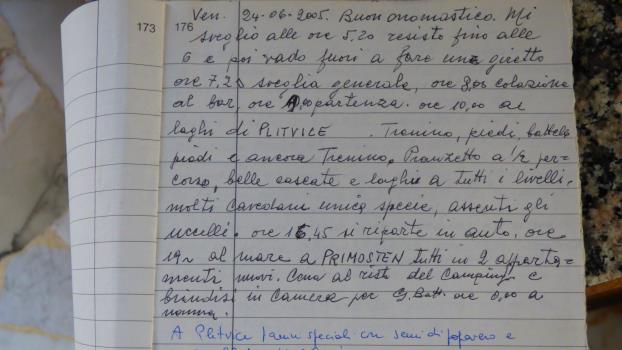 173 176 Ven. 24-06-2005. Buon onomastico. Mi
sveglio alle ore 5,20 resisto fino alle
6 e poi vado fuori a fare un giretto
ore 7,25 sveglia generale, ore 8,00 colazione
al bar, ore partenza. ore 10,00 ai
laghi di PLITVICE . Trenino, piedi, battello
piedi e ancora Trenino. Pranzetto a 1/2 per=
corso, belle cascate e laghi a tutti i livelli,
molti cavedani unica specie, assenti gli
uccelli. ore 16,45 si riparte in auto, ore
19 al mare a PRIMOSTEN tutti in 2 apparta=
menti nuovi. Cena al rist. del Camping e
brindisi in camera per G. Batt. ore 0,00 a
nanna.
A Plitvice panini speciali con semi di papavero e